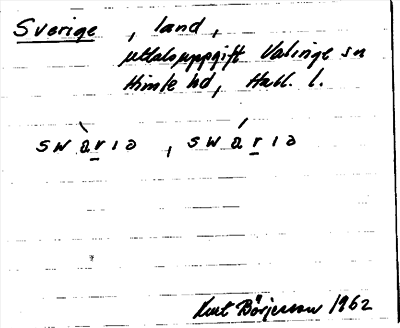 Sverige , land ,
uttalsuppgift Valinge sn
Himle hd, Hall. l.
swàrıa , swárıa
Kurt Börjesson 1962